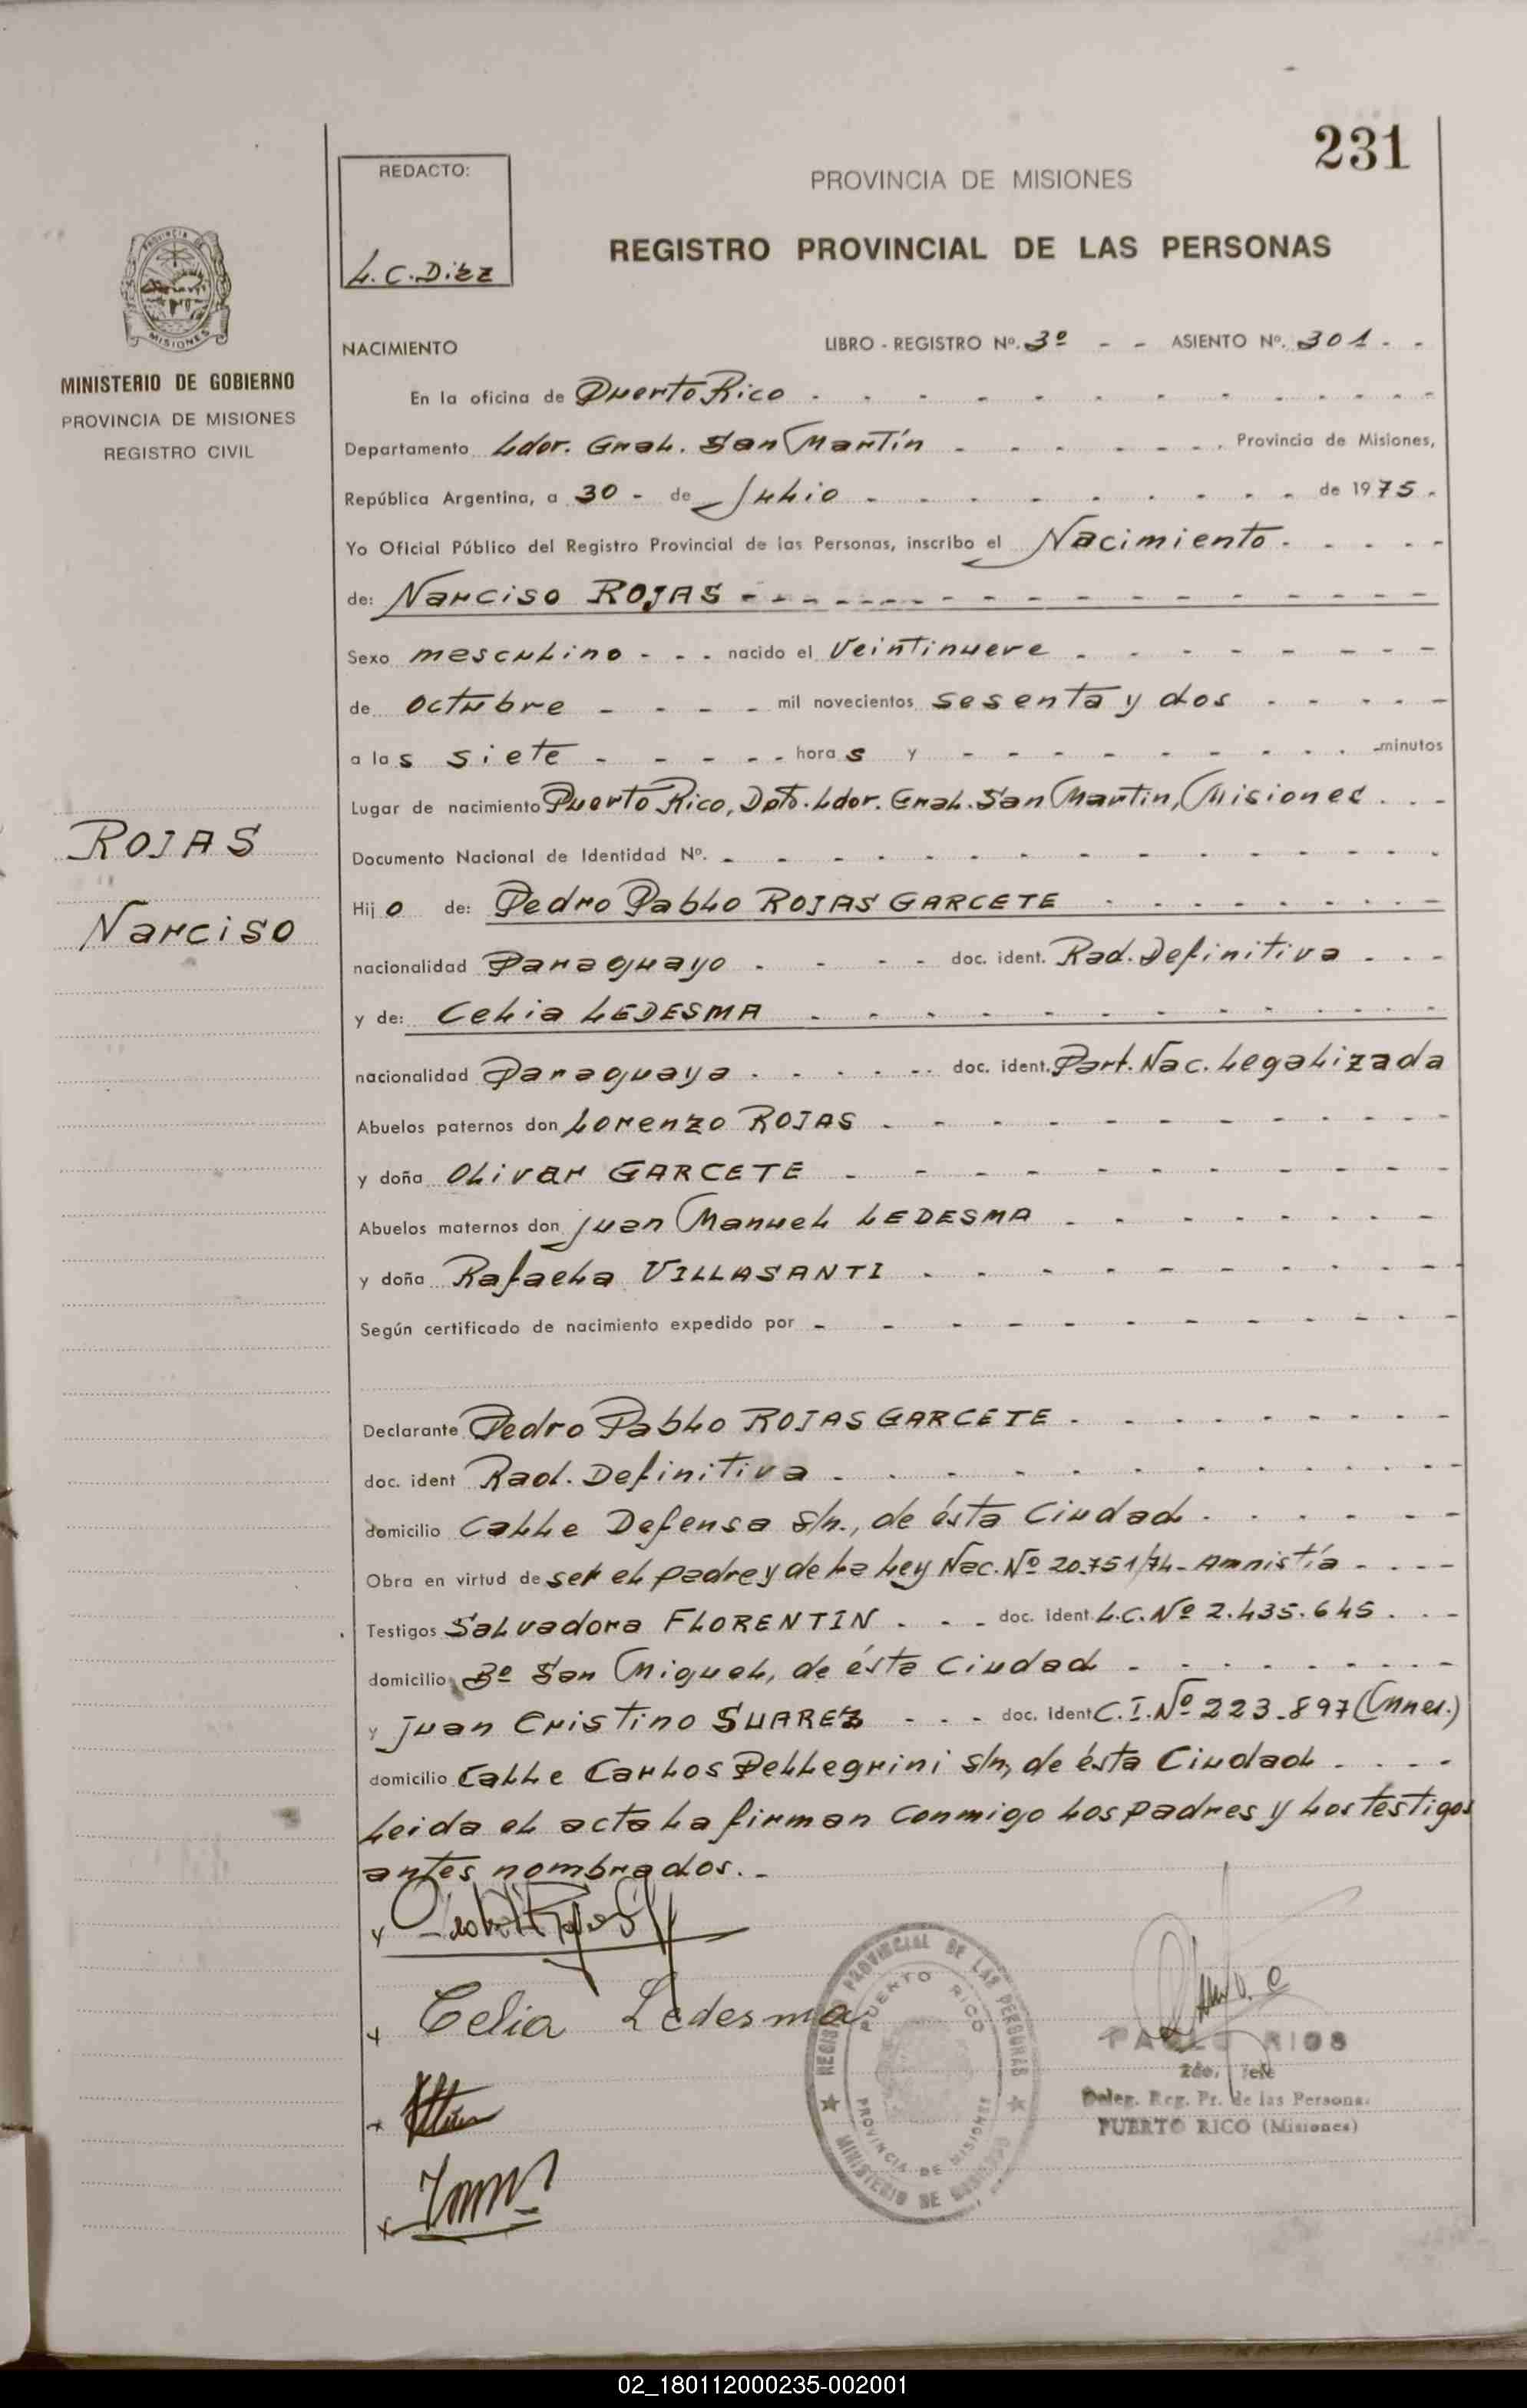 231
REDACTO:
L.C. Diez
PROVINCIA DE MISIONES
REGISTRO PROVINCIAL DE LAS PERSONAS
PROVINCIA DE
MISIONES
MINISTERIO DE GOBIERNO
PROVINCIA DE MISIONES
REGISTRO CIVIL
ROJAS
Narciso
NACIMIENTO LIBRO - REGISTRO Nº. 3º - - ASIENTO Nº. 301 - -
En la oficina de Puerto Rico
Departamento Ldor. Gral. San Martín Provincia de Misiones,
República Argentina, a 30 - de Julio de 1975.
Yo Oficial Público del Registro Provincial de las Personas, inscribo el Nacimiento
de: Narciso ROJAS
Sexo mesculino - - - nacido el Veintinueve
de octubre - - - - mil novecientos sesenta y dos
a las siete - - - - - horas y - - - - - - - - minutos
Lugar de nacimiento Puerto Rico, Dpto. Ldor. Gral. San Martin, Misiones
Documento Nacional de Identidad Nº.
Hijo de: Pedro Pablo ROJAS GARCETE
nacionalidad Paraguayo - - - - doc. ident. Rad. Definitiva
y de: Celia LEDESMA
nacionalidad Paraguaya - - - - doc. ident. Part. Nac. Legalizada
Abuelos paternos don Lorenzo ROJAS
y doña Olivar GARCETE
Abuelos maternos don Juan Manuel LEDESMA
y doña Rafaela VILLASANTI
Según certificado de nacimiento expedido por
Declarante Pedro Pablo ROJAS GARCETE
doc. ident Rad. Definitiva
domicilio Calle Defensa s/n., de ésta Ciudad
Obra en virtud de ser el padre y de la Ley Nac. Nº 20.751/74 - Amnistía
Testigos Salvadora FLORENTIN - - - doc. ident. L.C. Nº 2.435.645
domicilio Bº San Miguel, de ésta Ciudad
y Juan Cristino SUAREZ - - - doc. ident C.I. Nº 223.897 (Mnes.)
domicilio Calle Carlos Pellegrini s/n, de ésta Ciudad
Leida el acta la firman conmigo los padres y los testigos
antes nombrados.-
Celia Ledesma
REGISTRO PROVINCIAL DE LAS PERSONAS
PUERTO RICO
PROVINCIA DE MISIONES
MINISTERIO DE GOBIERNO
PABLO RIOS
2do. Jefe
Deleg. Reg. Pr. de las Personas
PUERTO RICO (Misiones)
02_180112000235-002001